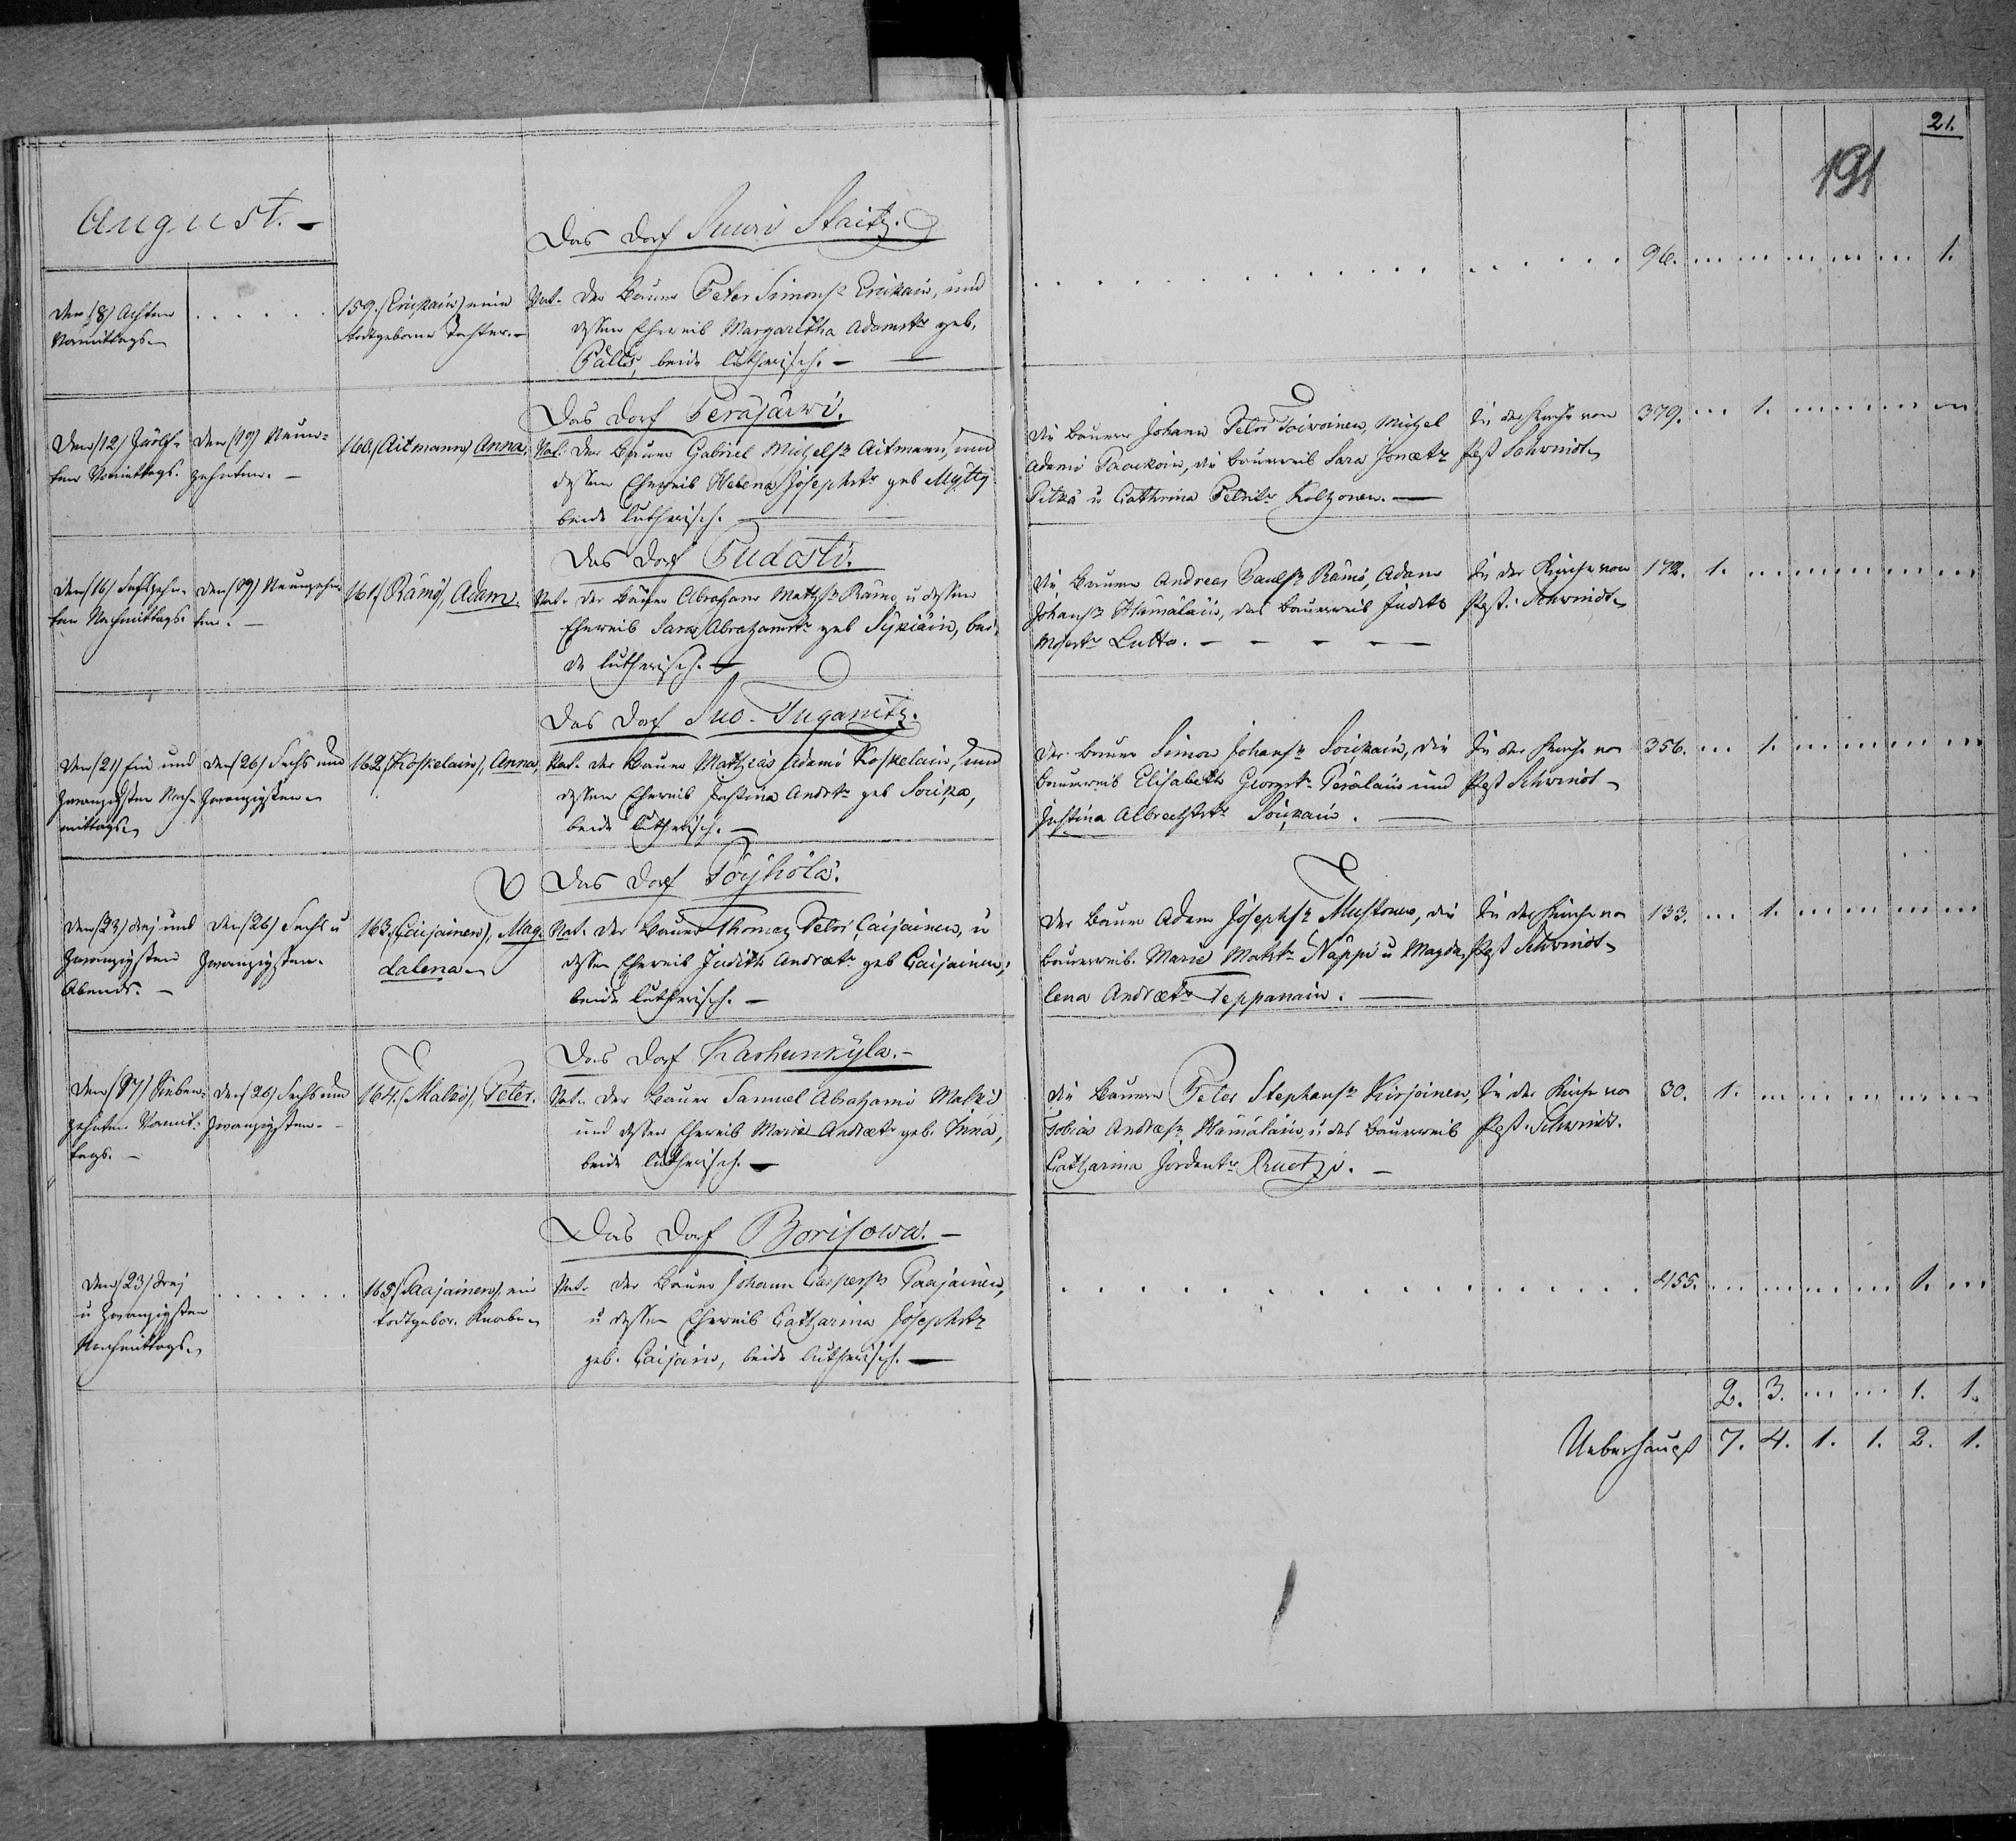 21.
191
August. -
Das Dorf Suuri Staitz.
Den (8) Achten
Vormittags.
159. (Erickain) eine
todtgeborne Tochter. -
Vat. Der Bauer Peter Simons Erikain, und
dessen Eheweib Margaretha Adamstr geb.
Pälli, beide lutherisch. -
96. 1.
Das Dorf Peräjärwi.
Den (12) Zwölf-
ten Vormittags.
Den (19) Neun-
zehnten. -
160. (Aitmann) Anna.
Vat. Der Bauer Gabriel Michels Aitmann, und
dessen Eheweib Helena Josephstr geb Mytty
beide lutherisch.
Die Bauern Johann Petri Toivoinen, Michel
Adami Paukoin, die Bauerweib Sara Jonætr
Pitkä u Cathrina Petritr Kolhonen. -
In der Kirche von
Past Schwindt
379. 1.
Das Dorf Pudosti.
Den (16) Sechszehn-
ten Nachmittags.
Den (19) Neunzehn-
ten. -
161. (Rämö), Adam.
Vat. Der Bauer Abraham Mathss Rämö u dessen
Eheweib Sara Abrahamstr geb Sykiäin, bei-
de lutherisch. -
Die Bauern Andreas Pauls Rämö, Adam
Johans Hämäläin, das Bauerweib Judith
Mosestr Lutta. - - - -
In der Kirche von
Past. Schwindt
172. 1.
Das Dorf Suo-Tuganitz.
Den (21) Ein und
zwanzigsten Nach-
mittags
Den (26) Sechs und
zwanzigsten
162. (Koskelain), Anna,
Vat. Der Bauer Mathias Adami Koskelain, und
dessen Eheweib Justina Andrtr geb Soicka,
beide lutherisch. -
Der Bauer Simon Johans Soickain, die
Bauerweib Elisabeth Georgstr Peräläin und
Justina Albrechtstr Soickain. -
In der Kirche von
Past Schwindt
356. 1.
Das Dorf Pöyhölä.
Den (23) drei und
zwanzigsten
Abends. -
Den (26) Sechs u
zwanzigsten.
163. (Caijainen), Mag-
dalena
Vat. Der Bauer Thomas Petri Caijainen, u
dessen Eheweib Judith Andrætr geb Caijainen,
beide lutherisch. -
Der Bauer Adam Josephs Mustonen, die
Bauerweib. Maria Mathtr Näppi u Magda-
lena Andrætr Teppanain. -
In der Kirche von
Past Schwindt
133. 1.
Das Dorf Karhunkyla. -
Den (17) Sieben-
zehnten Vormit-
tags. -
Den (26) Sechs und
zwanzigsten. -
164. (Malki), Peter.
Vat. Der Bauer Samuel Abrahami Malki
und dessen Eheweib Maria Andrætr geb. Inna,
beide lutherisch. -
Die Bauern Peter Stephans Kirjoinen,
Tobias Andreæ Hämäläin, u das Bauerweib
Catharina Jordentr Ruotzi. -
In der Kirche von
Past. Schwindt.
30. 1.
Das Dorf Borisowa. -
Den (23) drei
u zwanzigsten
Nachmittags
165. (Paajainen), ein
todtgebor. Knabe
Vat. Der Bauer Johann Caspers Paajainen,
u dessen Eheweib Catharina Josephstr
geb. Caijain, beide lutherisch. -
455. 1.
2. 3. 1. 1.
Ueberhaupt 7. 4. 1. 1. 2. 1.